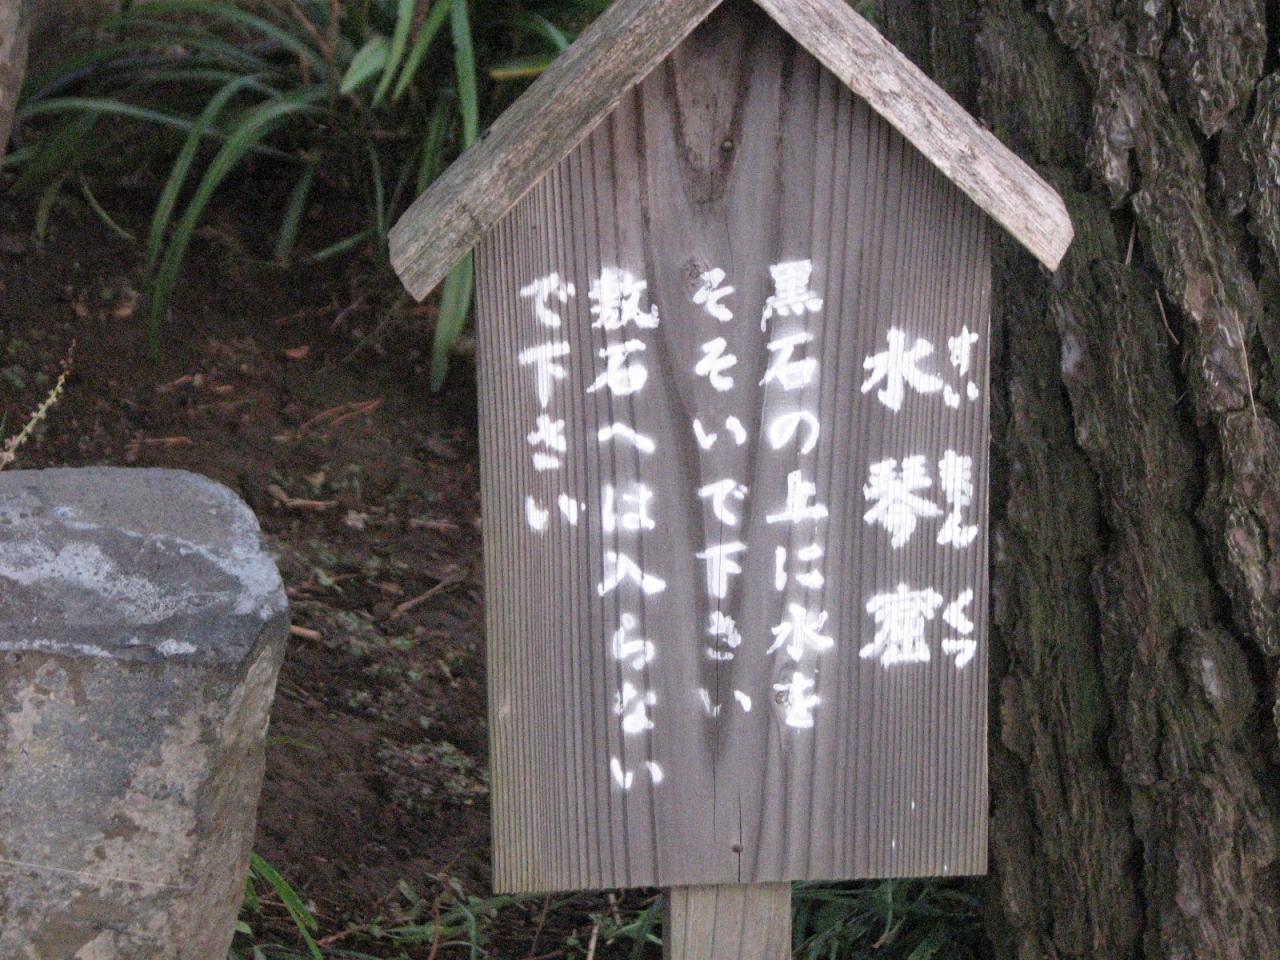 水琴窟
すいきんくつ
黒石の上に水を
そそいで下さい
敷石へは入らない
で下さい